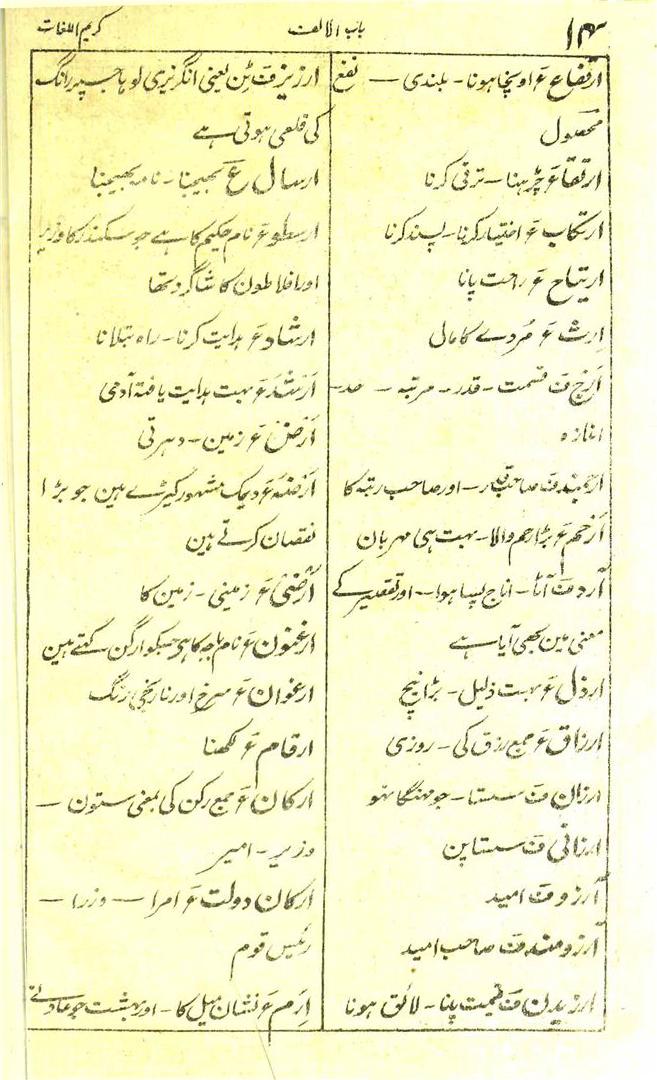 ۱۳ باب الالف کریم اللغات
ارتفاع ع اونچا ہونا - بلندی — نفع
محصول
ارتقاع چڑہنا - ترقی کرنا
ارتکاب ع اختیار کرنا - پسند کرنا
ارتیاح ع راحت پانا
اِرث ع مُردے کا مال
اَرج ف قسمت - قدر - مرتبہ — حد -
اندازہ
ارجمند ف صاحب قدر - اور صاحب رتبہ کا
اَرحم ع بڑا رحم والا - بہت ہی مہربان
آرد ف آٹا - اناج پسا ہوا - اور تقصیر کے
معنی مین بھی آیا ہے
ارذل ع بہت ذلیل - بڑا نیچ
ارزاق ع جمع رزق کی - روزی
ارزان ف سستا - جو مہنگا نہو
ارزانی ف سستاپن
آرزو ف امید
آرزومند ف صاحب امید
ارزیدن ف قیمت پانا - لائق ہونا
ارزیز ف ٹن یعنی انگریزی لوہا جسپر رانگ
کی قلعی ہوتی ہے
ارسال ع بھیجنا - نامہ بھیجنا
ارسطو ع نام حکیم کا ہے جو سکندر کا وزیر
اور افلاطون کا شاگرد تھا
ارشاد ع ہدایت کرنا - راہ بتلانا
اَرشد ع بہت ہدایت یافتہ آدمی
اَرض ع زمین - دہرتی
اَرضہ ع دیمک مشہور کیڑے ہین جو بڑا
نقصان کرتے ہین
اَرضی ع زمینی - زمین کا
ارغنون ع نام باجہ کا ہی جسکو ارگن کہتے ہین
ارغوان ع سرخ اور نارنجی رنگ
ارقام ع لکھنا
ارکان ع جمع رکن کی بمعنی ستون —
وزیر - امیر
ارکان دولت ع امرا — وزرا —
رئیس قوم
اِرم ع نشان میل کا - اور بہشت جو عاد نے